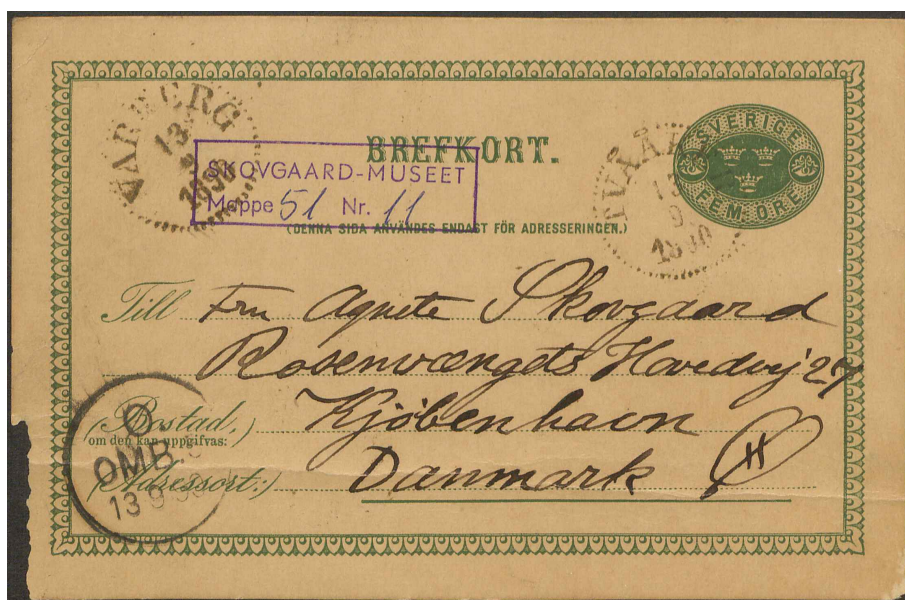 VARBERG
13
9
1890
SKOVGAARD-MUSEET
Mappe 51 Nr. 11
BREFKORT.
(DENNA SIDA ANVÄNDES ENDAST FÖR ADRESSERINGEN.)
SVERIGE
FEM ÖRE
13
9
1890
Till Fru Agnete Skovgaard
Rosenvængets Hovedvej 27
(Bostad, Kjöbenhavn
om den kan uppgifvas:)
(Adressort:) Danmark H
Ø
OMB.
13 9 90